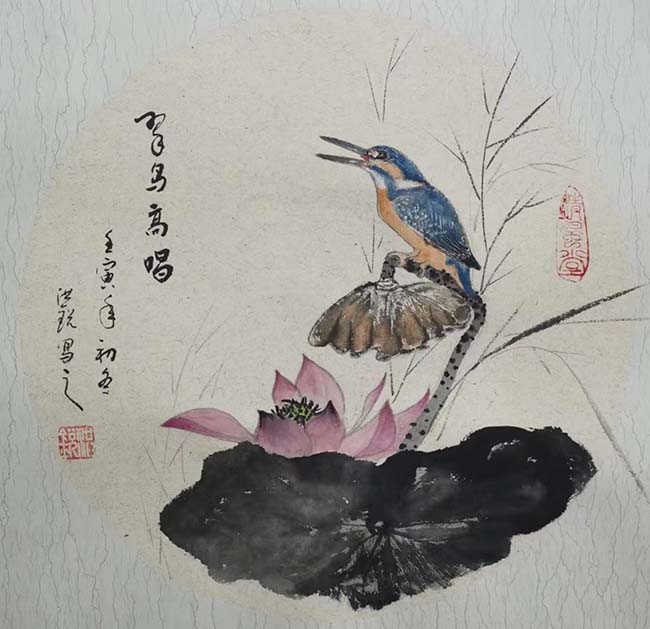 翠鸟高唱
壬寅年初冬
洪锐写之